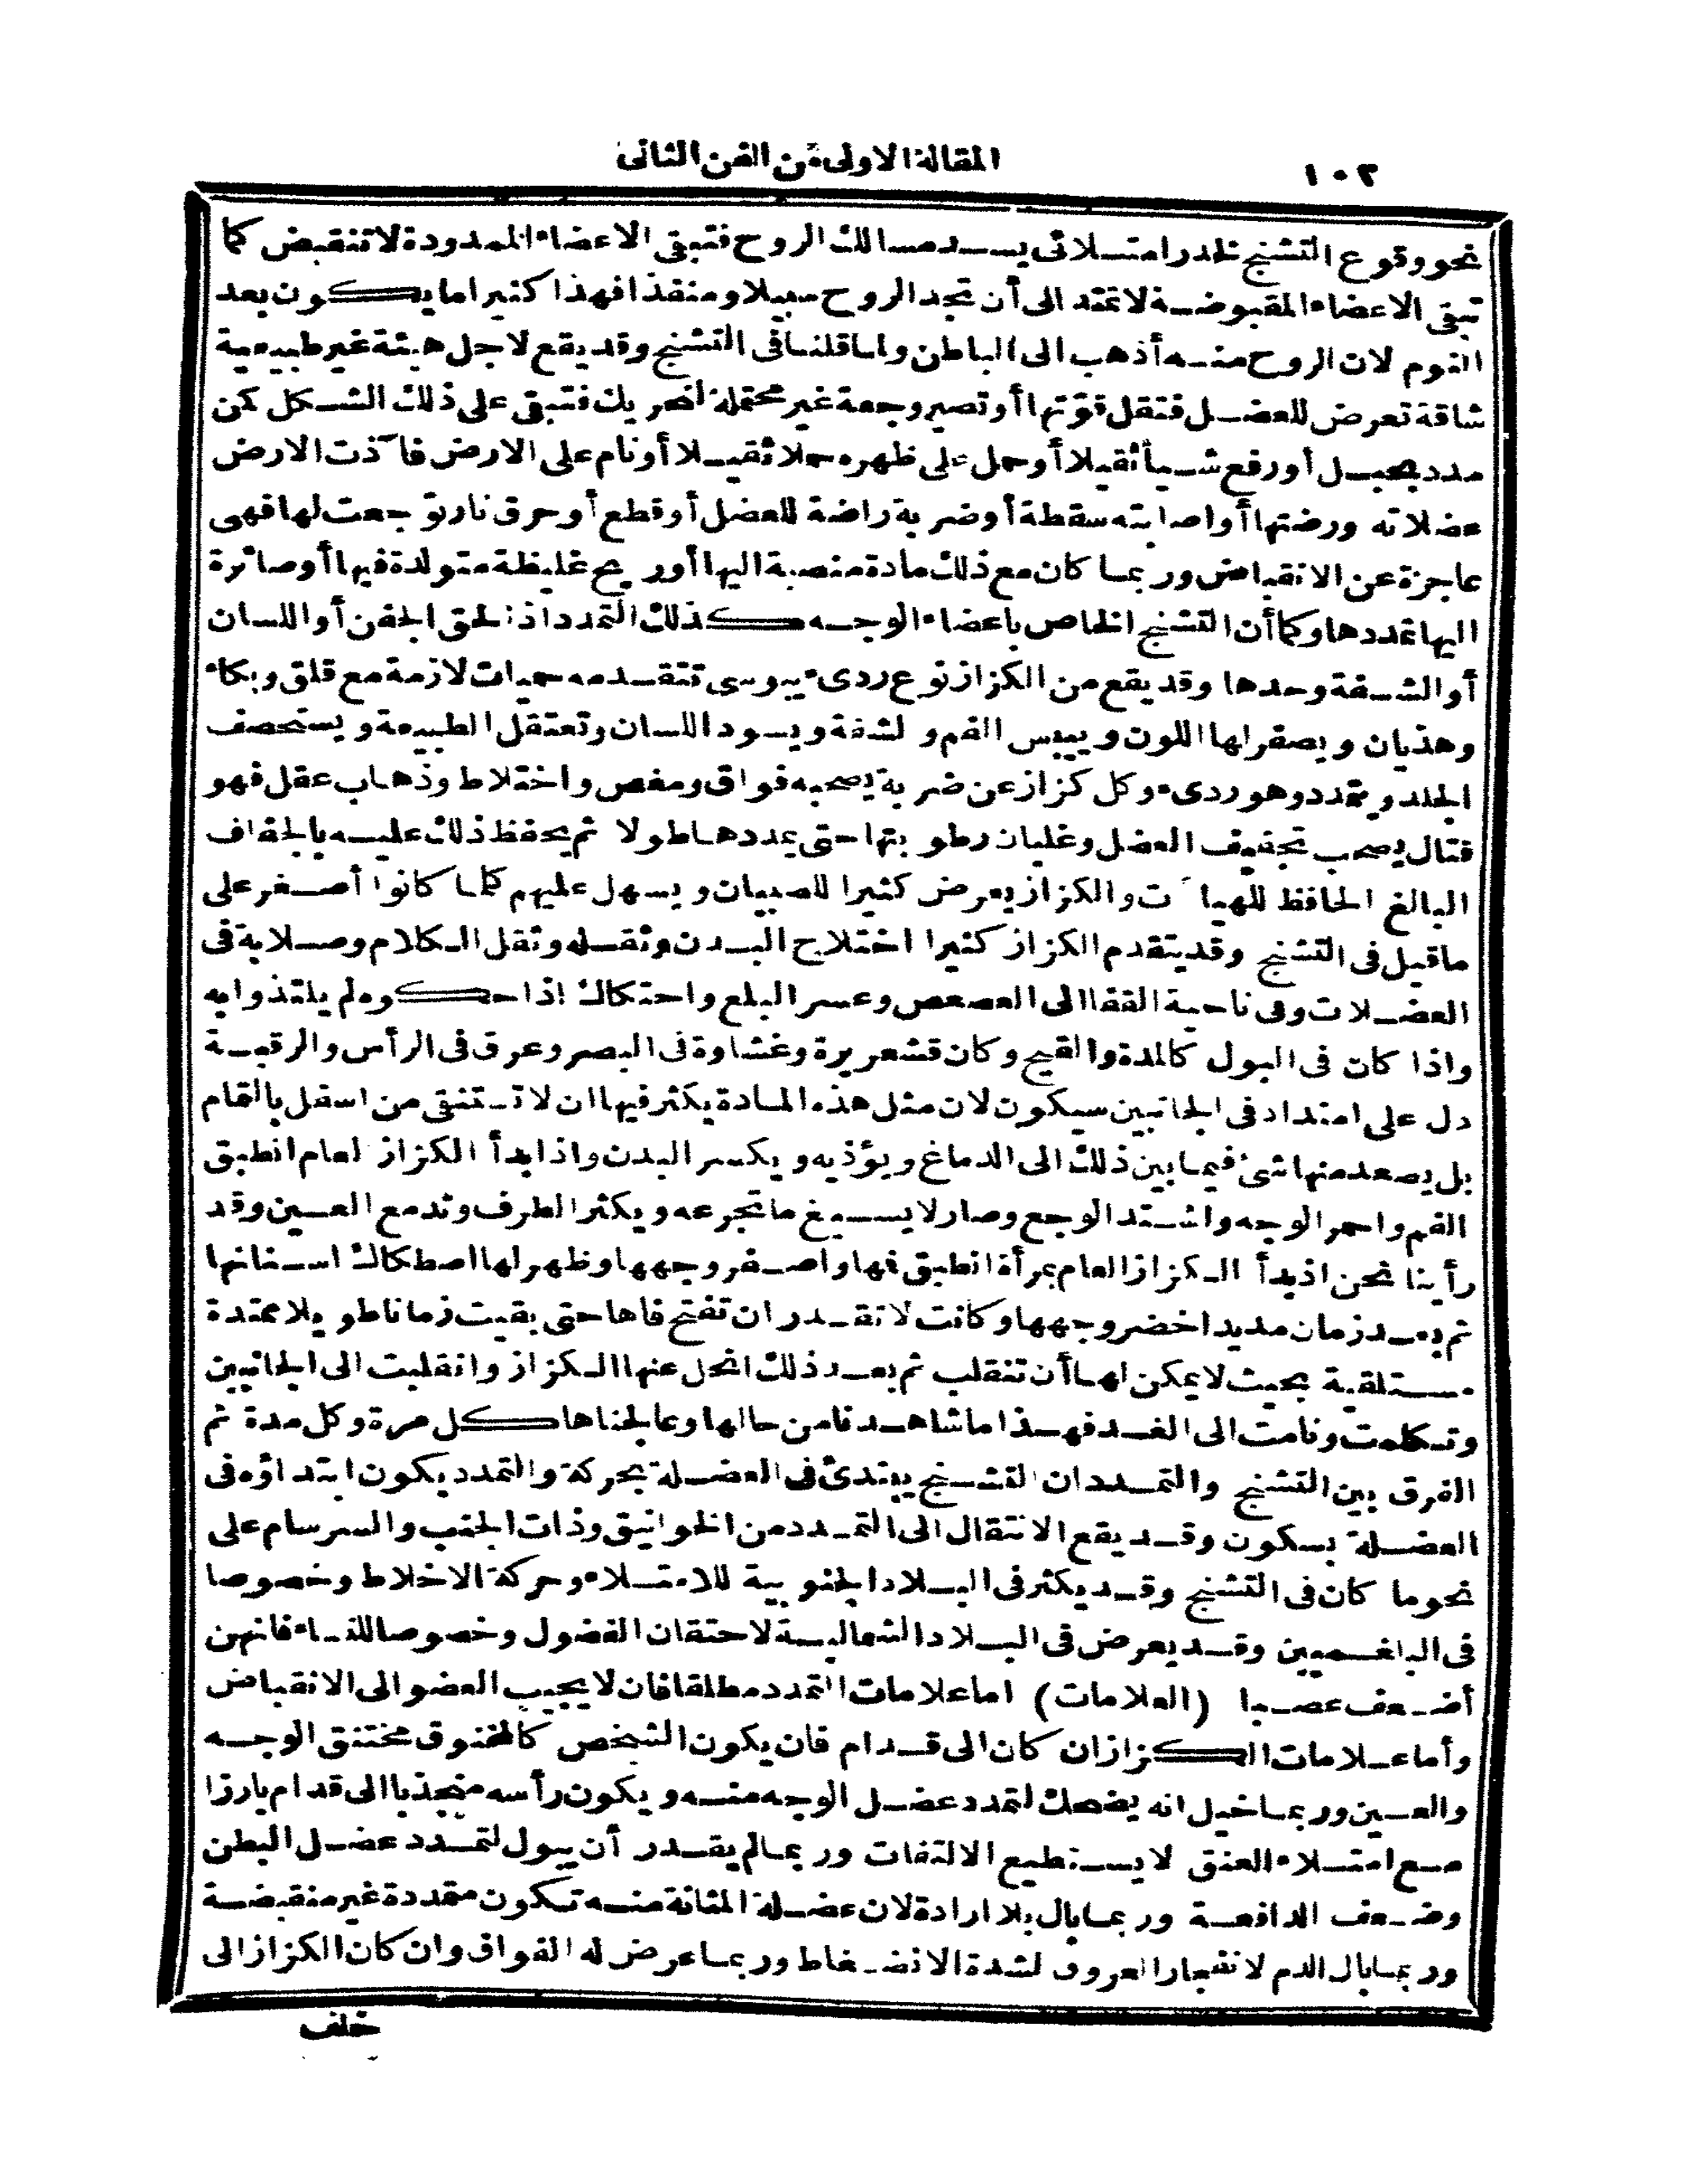 ١٠٢
المقالة الاولى من الفن الثانى
نحو وقوع التشنج لخدر امتلائى يسد مسالك الروح فتبقى الاعضاء الممدودة لا تنقبض كما
تبقى الاعضاء المقبوضة لا تمتد الى أن تجد الروح سبيلا ومنفذا فهذا كثيرا ما يكون بعد
النوم لان الروح منه أذهب الى الباطن ولما قلنا فى التشنج وقد يقع لاجل هيئة غير طبيعية
شاقة تعرض للعضل فتقل قوتها أو تصير وجعة غير محتملة لتحريك فتبقى على ذلك الشكل كمن
مدد بحبل أو رفع شيأ ثقيلا أو حمل على ظهره حملا ثقيلا أو نام على الارض فآذت الارض
عضلاته ورضتها أو اصابته سقطة أو ضربة راضة للعضل أو قطع أو حرق نار توجعت لها فهى
عاجزة عن الانقباض وربما كان مع ذلك مادة منصبة اليها أو ريح غليظة متولدة فيها أو صائرة
اليها تمددها وكما أن التشنج الخاص باعضاء الوجه كذلك التمدد اذا لحق الجفن أو اللسان
أو الشفة وحدها وقد يقع من الكزاز نوع ردىء يبوسى تتقدمه حميات لازمة مع قلق وبكاء
وهذيان ويصفر لها اللون وييبس الفم والشفة ويسود اللسان وتعتقل الطبيعة ويستحصف
الجلد ويتمدد وهو ردىء وكل كزاز عن ضربة يصحبه فواق ومغص واختلاط وذهاب عقل فهو
قتال يصحب تجفيف العضل وغليان رطوبتها حتى يمددها طولا ثم يحفظ ذلك عليه بالجفاف
البالغ الحافظ للهيآت والكزاز يعرض كثيرا للصبيان ويسهل عليهم كلما كانوا أصغر على
ما قيل فى التشنج وقد يتقدم الكزاز كثيرا اختلاج البدن وثقله وثقل الكلام وصلابة فى
العضلات وفى ناحية القفا الى العصعص وعسر البلع واحتكاك اذا حكوه لم يلتذوا به
واذا كان فى البول كالمدة والقيح وكان قشعريرة وغشاوة فى البصر وعرق فى الرأس والرقبة
دل على امتداد فى الجانبين سيكون لان مثل هذه المادة يكثر فيها ان لا تستنقى من اسفل بالتمام
بل يصعد منها شئ فيما بين ذلك الى الدماغ ويؤذيه ويكسر البدن واذا بدأ الكزاز العام انطبق
الفم واحمر الوجه واشتد الوجع وصار لا يسيغ ما تجرعه ويكثر الطرف وتدمع العين وقد
رأينا نحن اذ بدأ الكزاز العام بمرأة انطبق فمها واصفر وجهها وظهر لها اصطكاك اسنانها
ثم بعد زمان مديد اخضر وجهها وكانت لا تقدر ان تفتح فاها حتى بقيت زمانا طويلا ممتدة
مستلقية بحيث لا يمكن لها أن تنقلب ثم بعد ذلك انحل عنها الكزاز وانقلبت الى الجانبين
وتكلمت ونامت الى الغد فهذا ما شاهدنا من حالها وعالجناها كل مرة وكل مدة ثم
الفرق بين التشنج والتمدد ان التشنج يبتدئ فى العضلة بحركة والتمدد يكون ابتداؤه فى
العضلة بسكون وقد يقع الانتقال الى التمدد من الخوانيق وذات الجنب والسرسام على
نحو ما كان فى التشنج وقد يكثر فى البلاد الجنوبية للامتلاء وحركة الاخلاط وخصوصا
فى البلغميين وقد يعرض فى البلاد الشمالية لاحتقان الفضول وخصوصا للنساء فانهن
أضعف عصبا (العلامات) اما علامات التمدد مطلقا فان لا يجيب العضو الى الانقباض
وأما علامات الكزاز ان كان الى قدام فان يكون الشخص كالمخنوق مختنق الوجه
والعين وربما خيل انه يضحك لتمدد عضل الوجه منه ويكون رأسه منجذبا الى قدام بارزا
مع امتلاء العنق لا يستطيع الالتفات وربما لم يقدر أن يبول لتمدد عضل البطن
وضعف الدافعة وربما بال بلا ارادة لان عضلة المثانة منه تكون متمددة غير منقبضة
وربما بال الدم لانفجار العروق لشدة الانضغاط وربما عرض له الفواق وان كان الكزاز الى
خلف